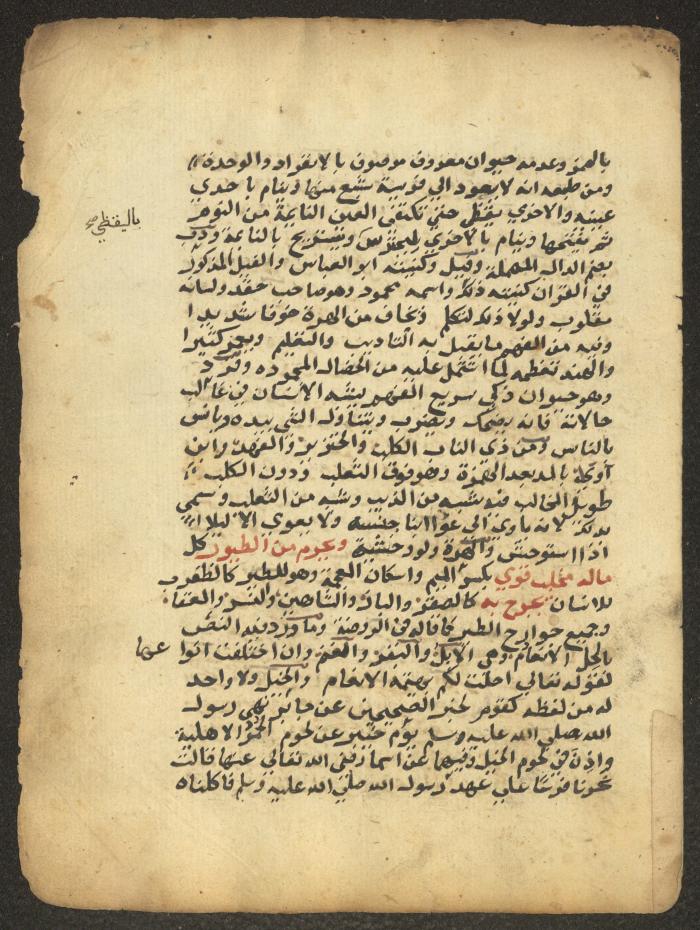 بالهمز وعدمه حيوان معروف موصوف بالانفراد والوحدة
ومن طبعه انه لا يعود الي فريسة شبع منها وينام باحدي
عينيه والاخري يقظي حتي تكتفي العين النايمة من النوم
ثم يفتحها وينام بالاخري ليحترس ويستريح بالنايمة ودب
بضم الدال المهملة وفيل وكنيته ابو العباس والفيل المذكور
في القران كنيته ذلك واسمه محمود وهو صاحب حقد ولسانه
مقلوب ولولا ذلك لتكلم ويخاف من الهرة خوفا شديدا
وفيه من الفهم ما يقبل به التاديب والتعليم ويعمر كثيرا
والهند تعظمه لما اشتمل عليه من الخصال المحموده وقرد
وهو حيوان ذكي سريع الفهم يشبه الانسان في غالب
حالاته فانه يضحك ويضرب ويتناول الشي بيده ويانس
بالناس ومن ذي الناب الكلب والخنزير والفهد وابن
آوي بالمد بعد الهمزة وهو فوق الثعلب ودون الكلب
طويل المخالب فيه شبه من الذيب وشبه من الثعلب وسمي
بذلك لانه ياوي الي عوا ابنا جنسه ولا يعوي الا ليلا
اذا استوحش والهرة ولو وحشية ويحرم من الطيور كل
ماله مخلب قوي بكسر الميم واسكان المعجمة وهو للطير كالظفر
للانسان يجرح به كالصقر والباز والشاهين والنسر والعقاب
وجميع جوارح الطير كما قاله في الروضة وما ورد فيه النص
بالحل الانعام وهي الابل والبقر والغنم وان اختلفت انواعها
لقوله تعالي احلت لكم بهيمة الانعام والخيل ولا واحد
له من لفظه كقوم لخبر الصحيحين عن جابر نهي رسول
الله صلي الله عليه وسلم يوم خيبر عن لحوم الحمر الاهلية
واذن في لحوم الخيل وفيهما عن اسما رضي الله تعالي عنها قالت
نحرنا فرسا علي عهد رسول الله صلي الله عليه وسلم فاكلناه
باليقظي صح